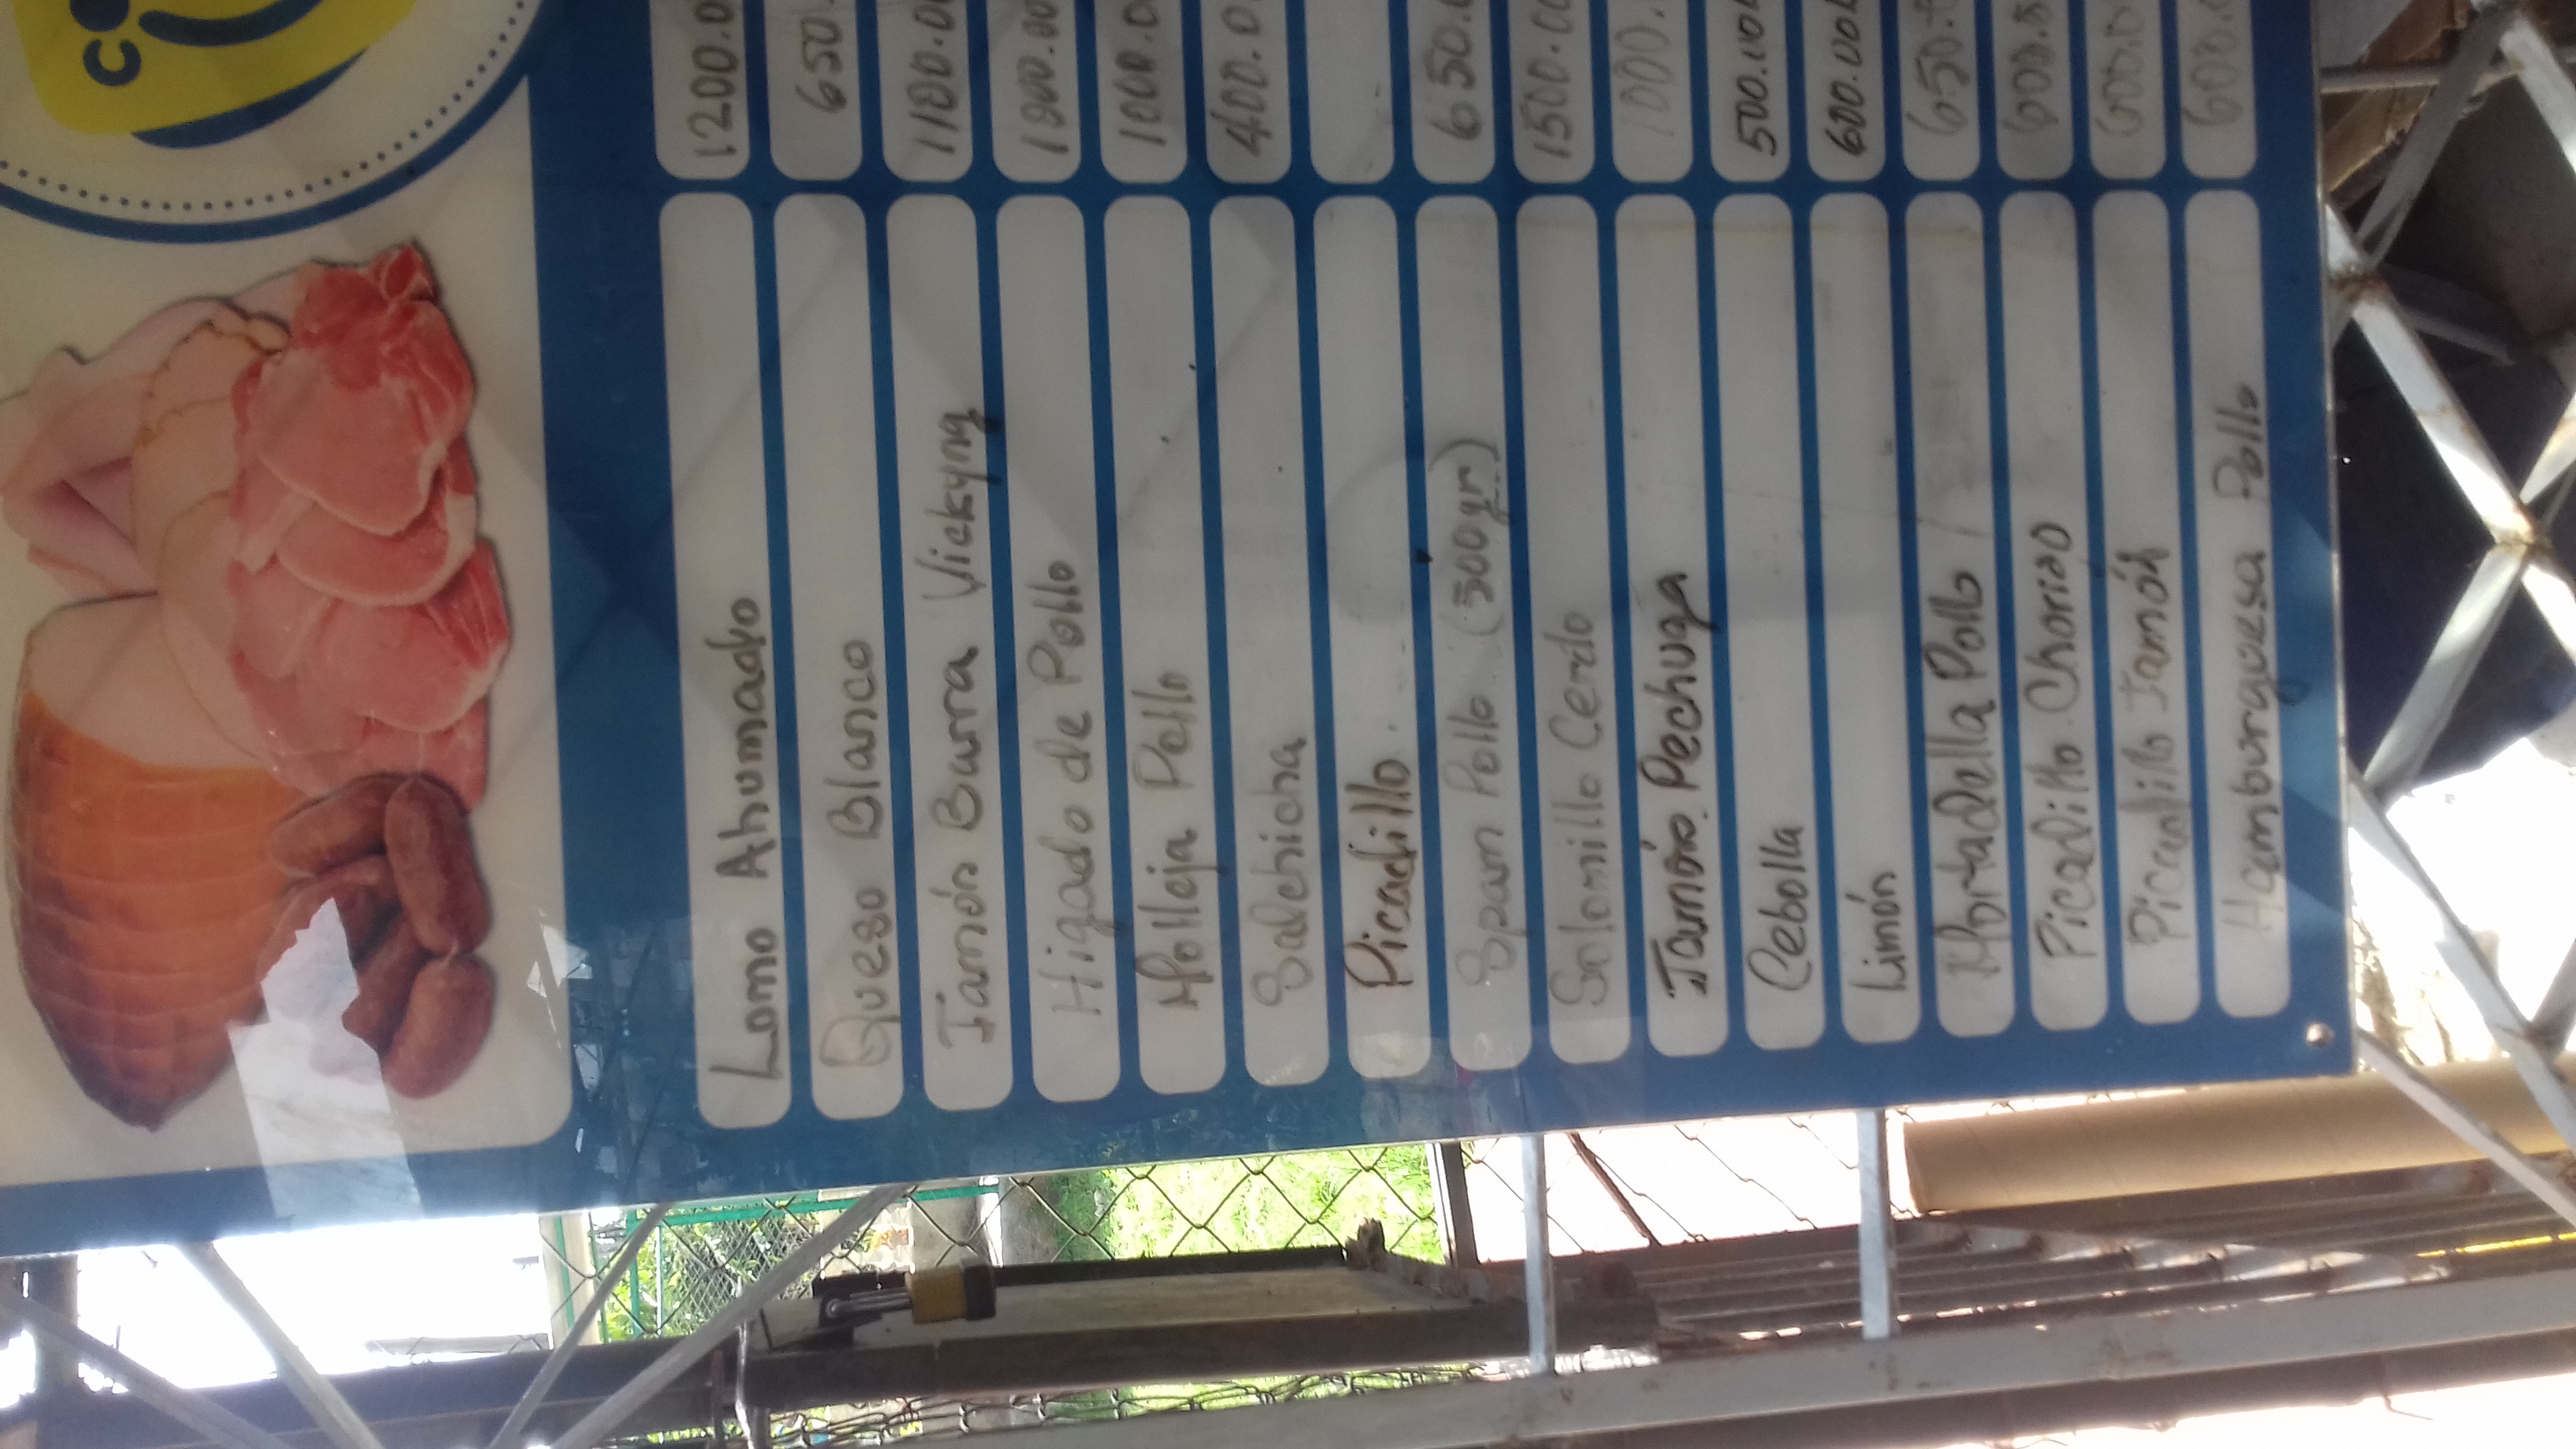 Lomo Ahumado 1200.0
Queso Blanco 650
Jamón Barra Vickyng 1100.0
Higado de Pollo .00
Molleja Pollo 1000.0
Salchicha 400.0
Picadillo
Spam Pollo (500gr) 650.
Solomillo Cerdo 1500.00
Jamón Pechuga 1000.
Cebolla 500.00
Limón 600.00
Mortadella Pollo 650.
Picadillo Chorizo 600.
Picadillo Jamón 600.0
Hamburguesa Pollo 600.